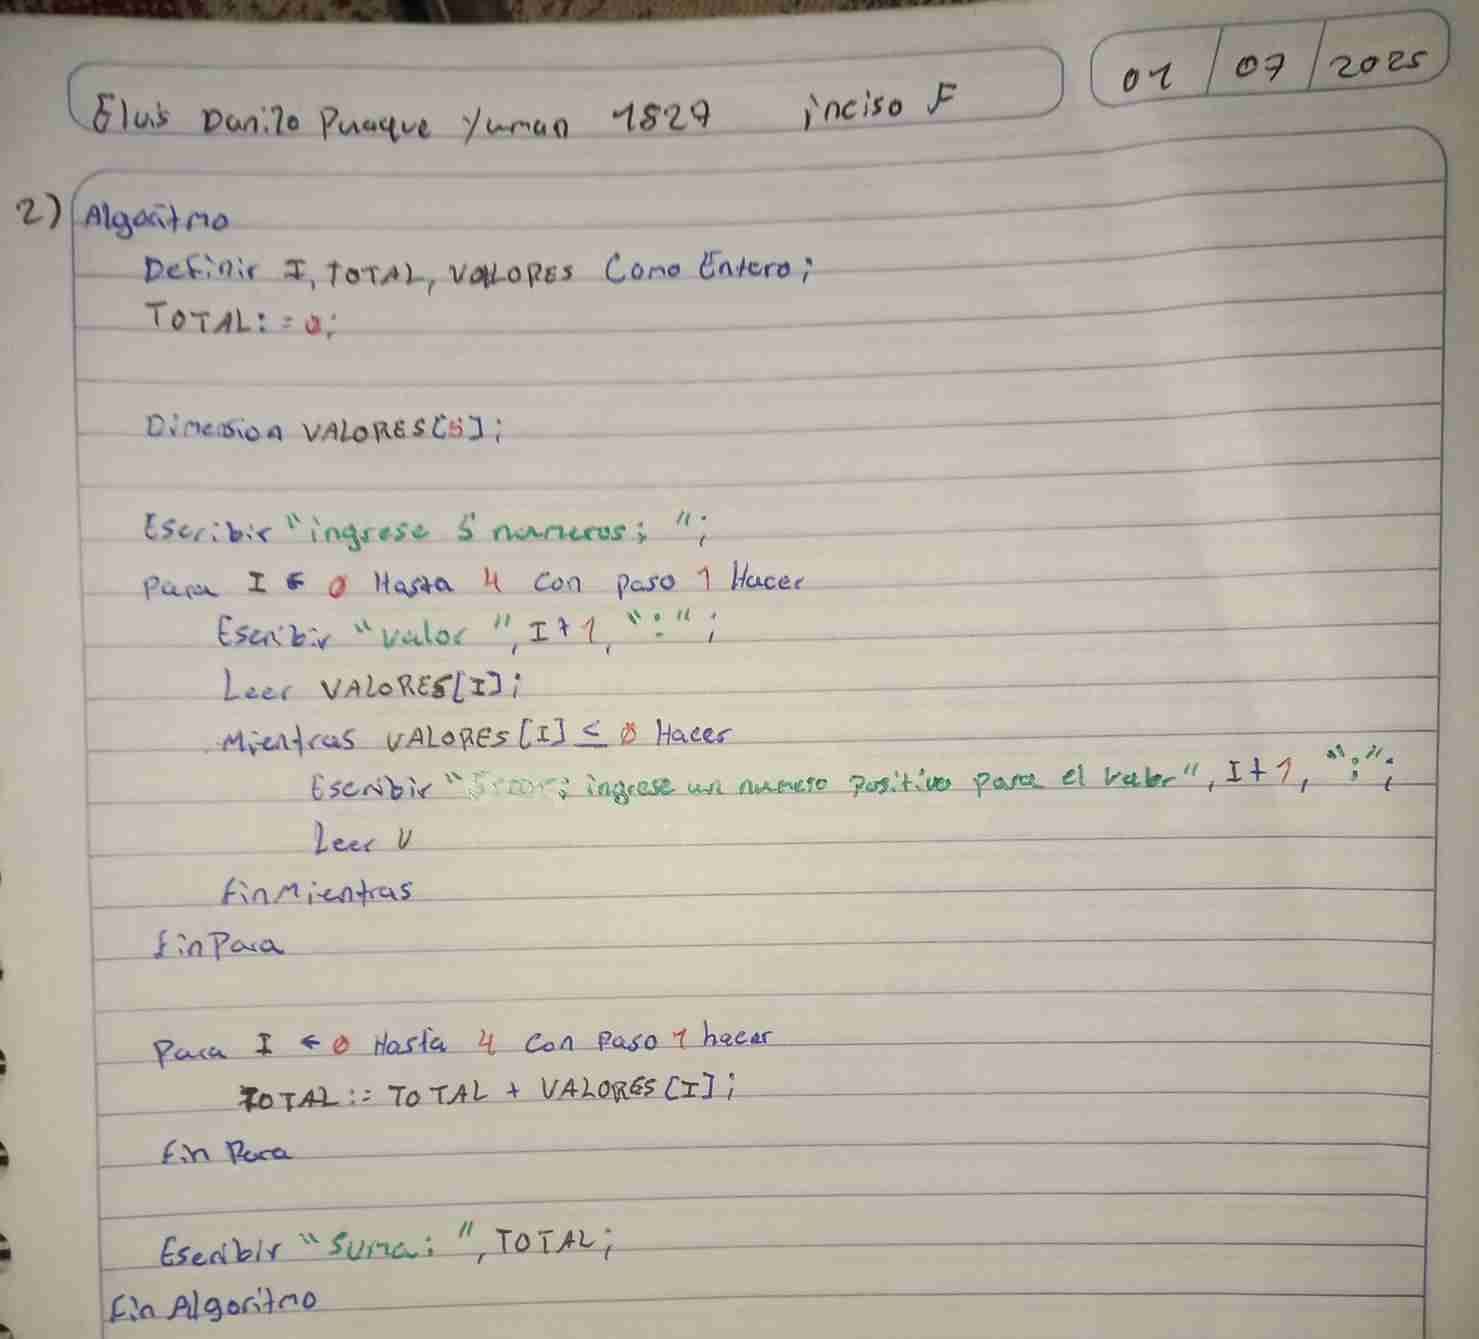 Eluis Danilo Puaque Yuman 1827 inciso F
01/07/2025
2) Algoritmo
Definir I, TOTAL, VALORES Como Entero;
TOTAL:=0;
Dimension VALORES[5];
Escribir "ingrese 5 numeros: ";
Para I ← 0 Hasta 4 Con paso 1 Hacer
Escribir "valor ", I+1, ":";
Leer VALORES[I];
Mientras VALORES[I] ≤ 0 Hacer
Escribir "Error: ingrese un numero positivo para el valor", I+1, ":";
Leer V
FinMientras
FinPara
Para I ← 0 Hasta 4 Con Paso 1 hacer
TOTAL:= TOTAL + VALORES[I];
Fin Para
Escribir "Suma: ", TOTAL;
Fin Algoritmo